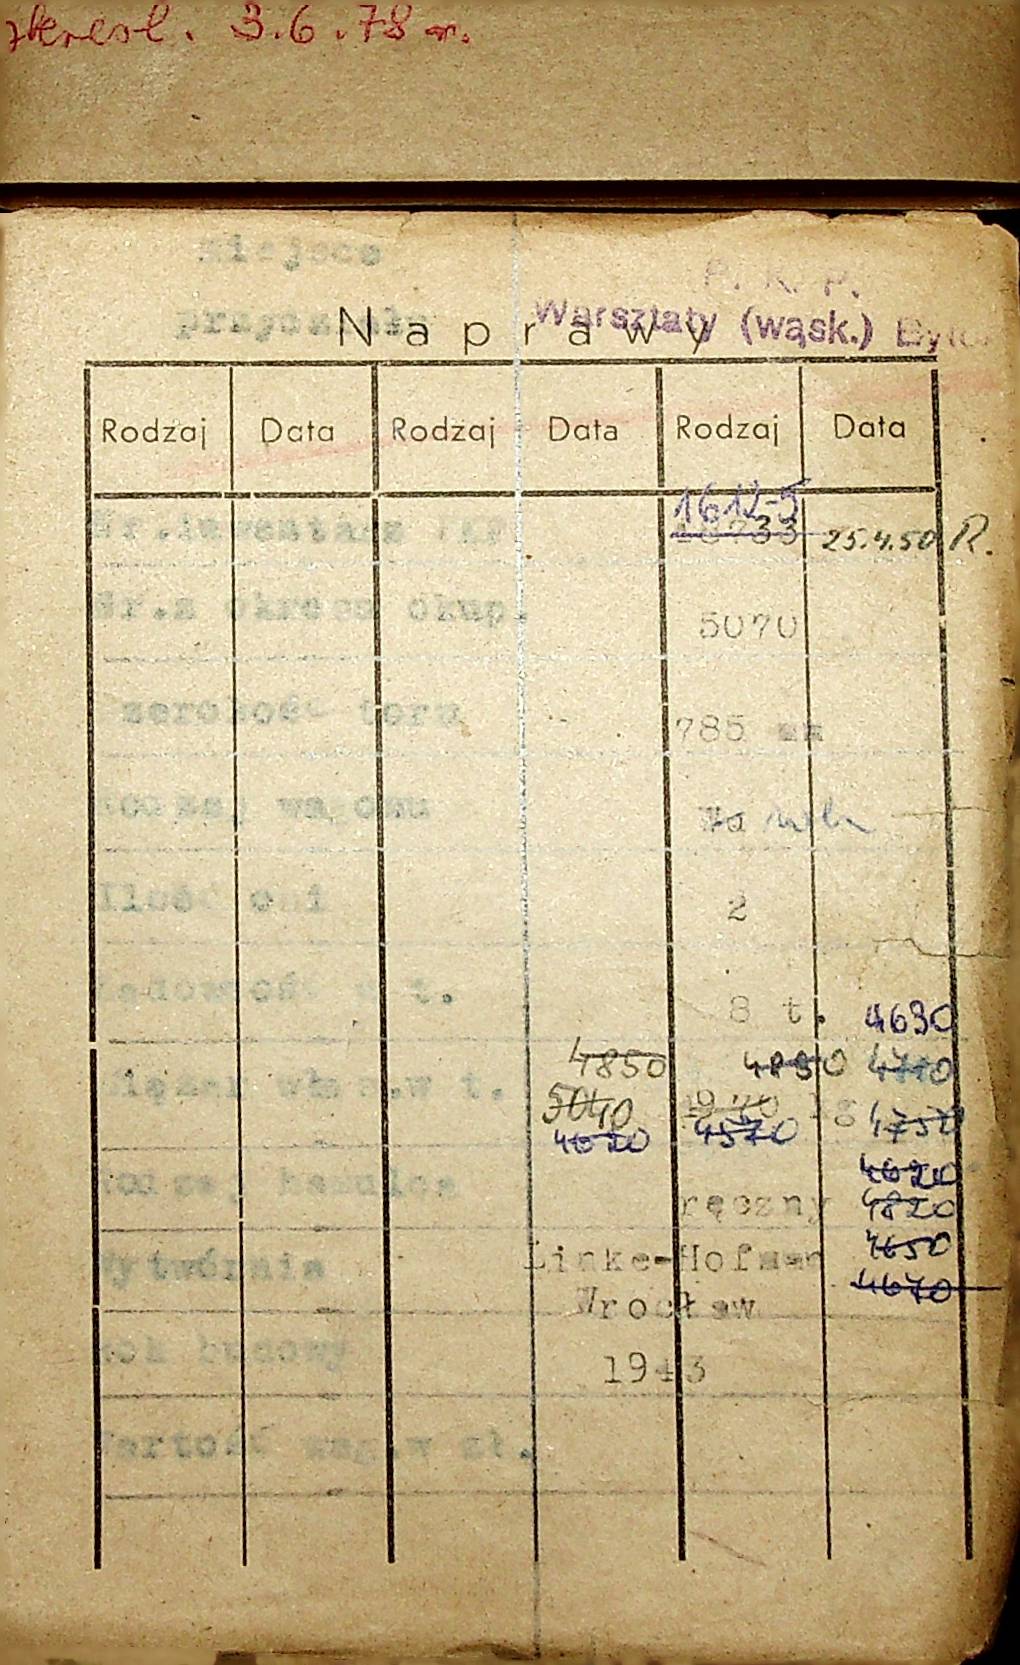 skreśl. 3.6.78 r.
Miejsce
P. K. P.
przydziału
Warsztaty (wąsk.)
Naprawy
Rodzaj Data Rodzaj Data Rodzaj Data
1612-5
Nr.inwentarz 25.4.50 R.
Nr.z okresu okup. 5070
Szerokość toru 785 mm
Rodzaj wagonu
Ilość osi 2
Ładowność w t. 8 t. 4630
4850 4850 4710
Ciężar włas.w t. 5040 kg 4750
4620 4570
4620
Rodzaj hamulca ręczny 4820
Wytwórnia Linke-Hofman 4650
Wrocław 4670
Rok budowy 1943
Wartość wag.w zł.